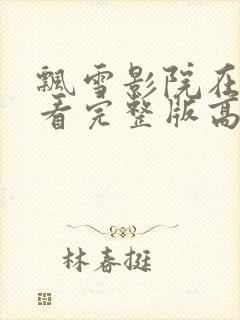 飘雪影院在
看完整版高
林春挺